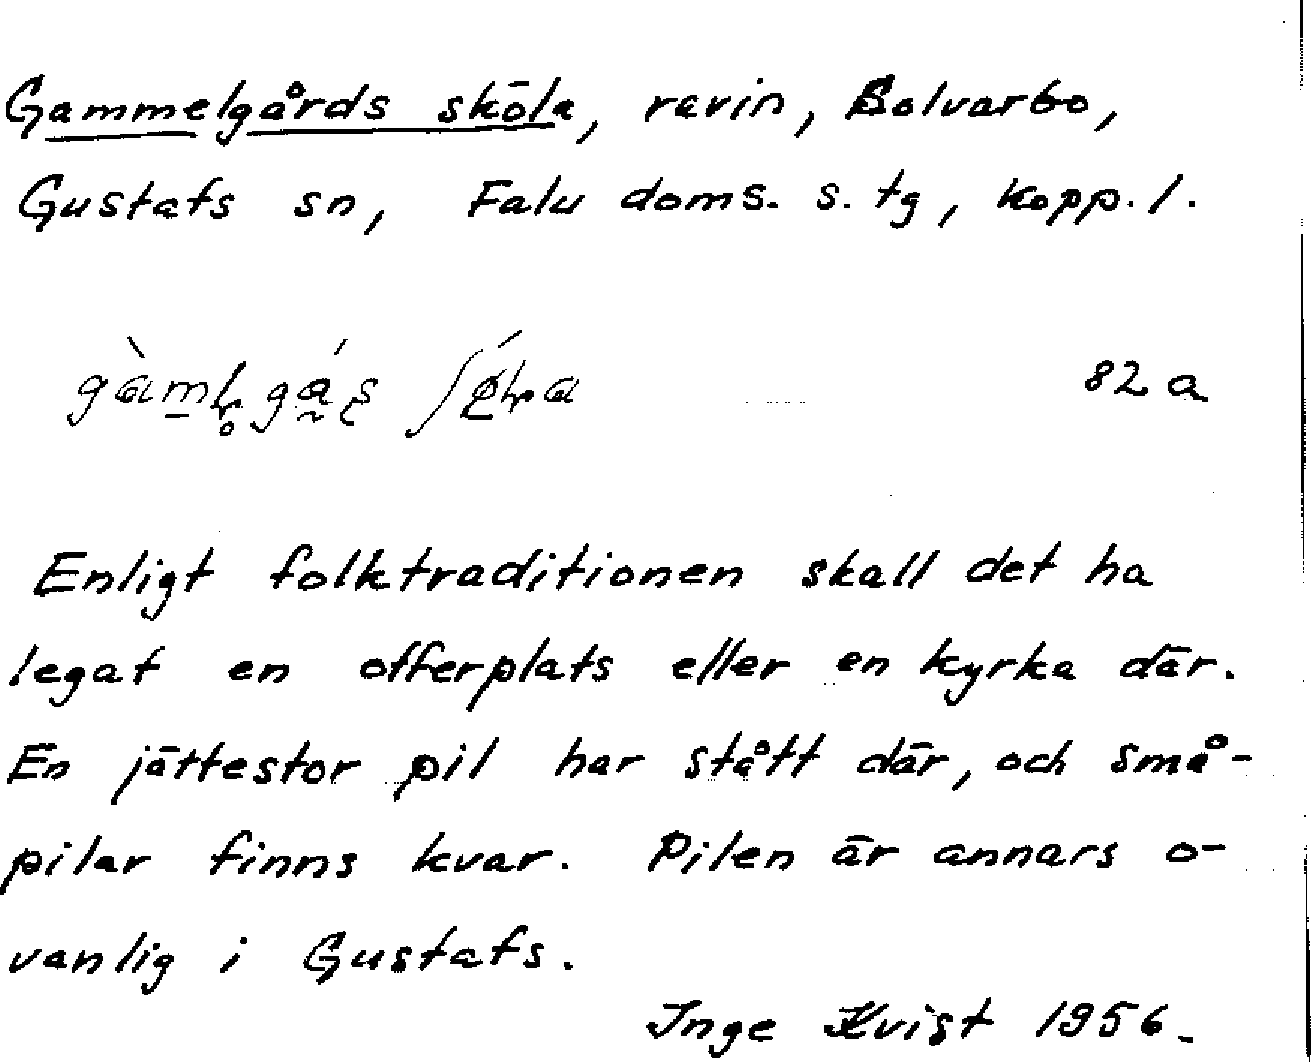 Gammelgårds sköla, ravin, Solvarbo,
Gustafs sn, Falu doms. s. tg, Kopp. l.
82 a
Enligt folktraditionen skall det ha
legat en offerplats eller en kyrka där.
En jättestor pil har stått där, och små-
pilar finns kvar. Pilen är annars o-
vanlig i Gustafs.
Inge Kvist 1956.